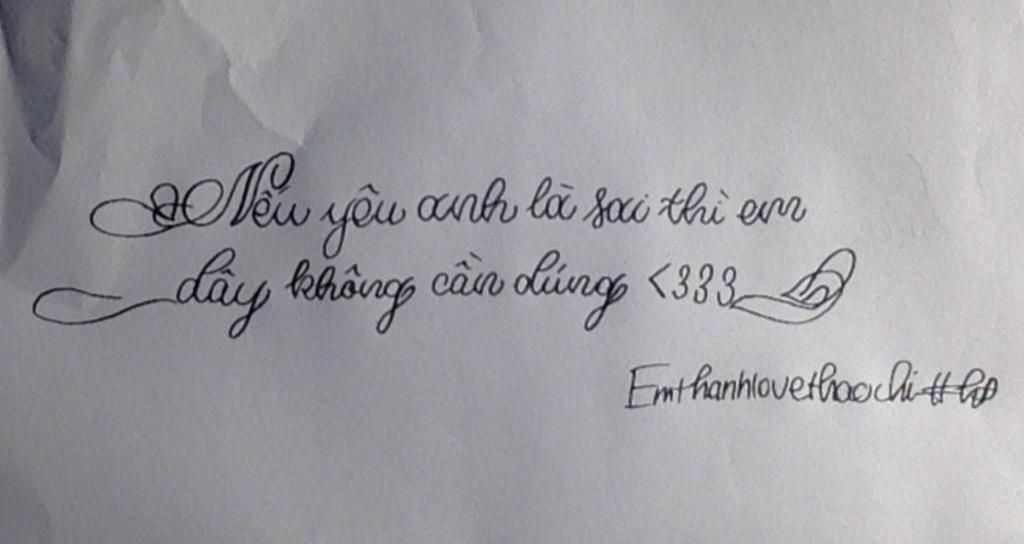 Nếu yêu anh là sai thì em
dây không cần dúng <333
Emthanhlovethaochi#